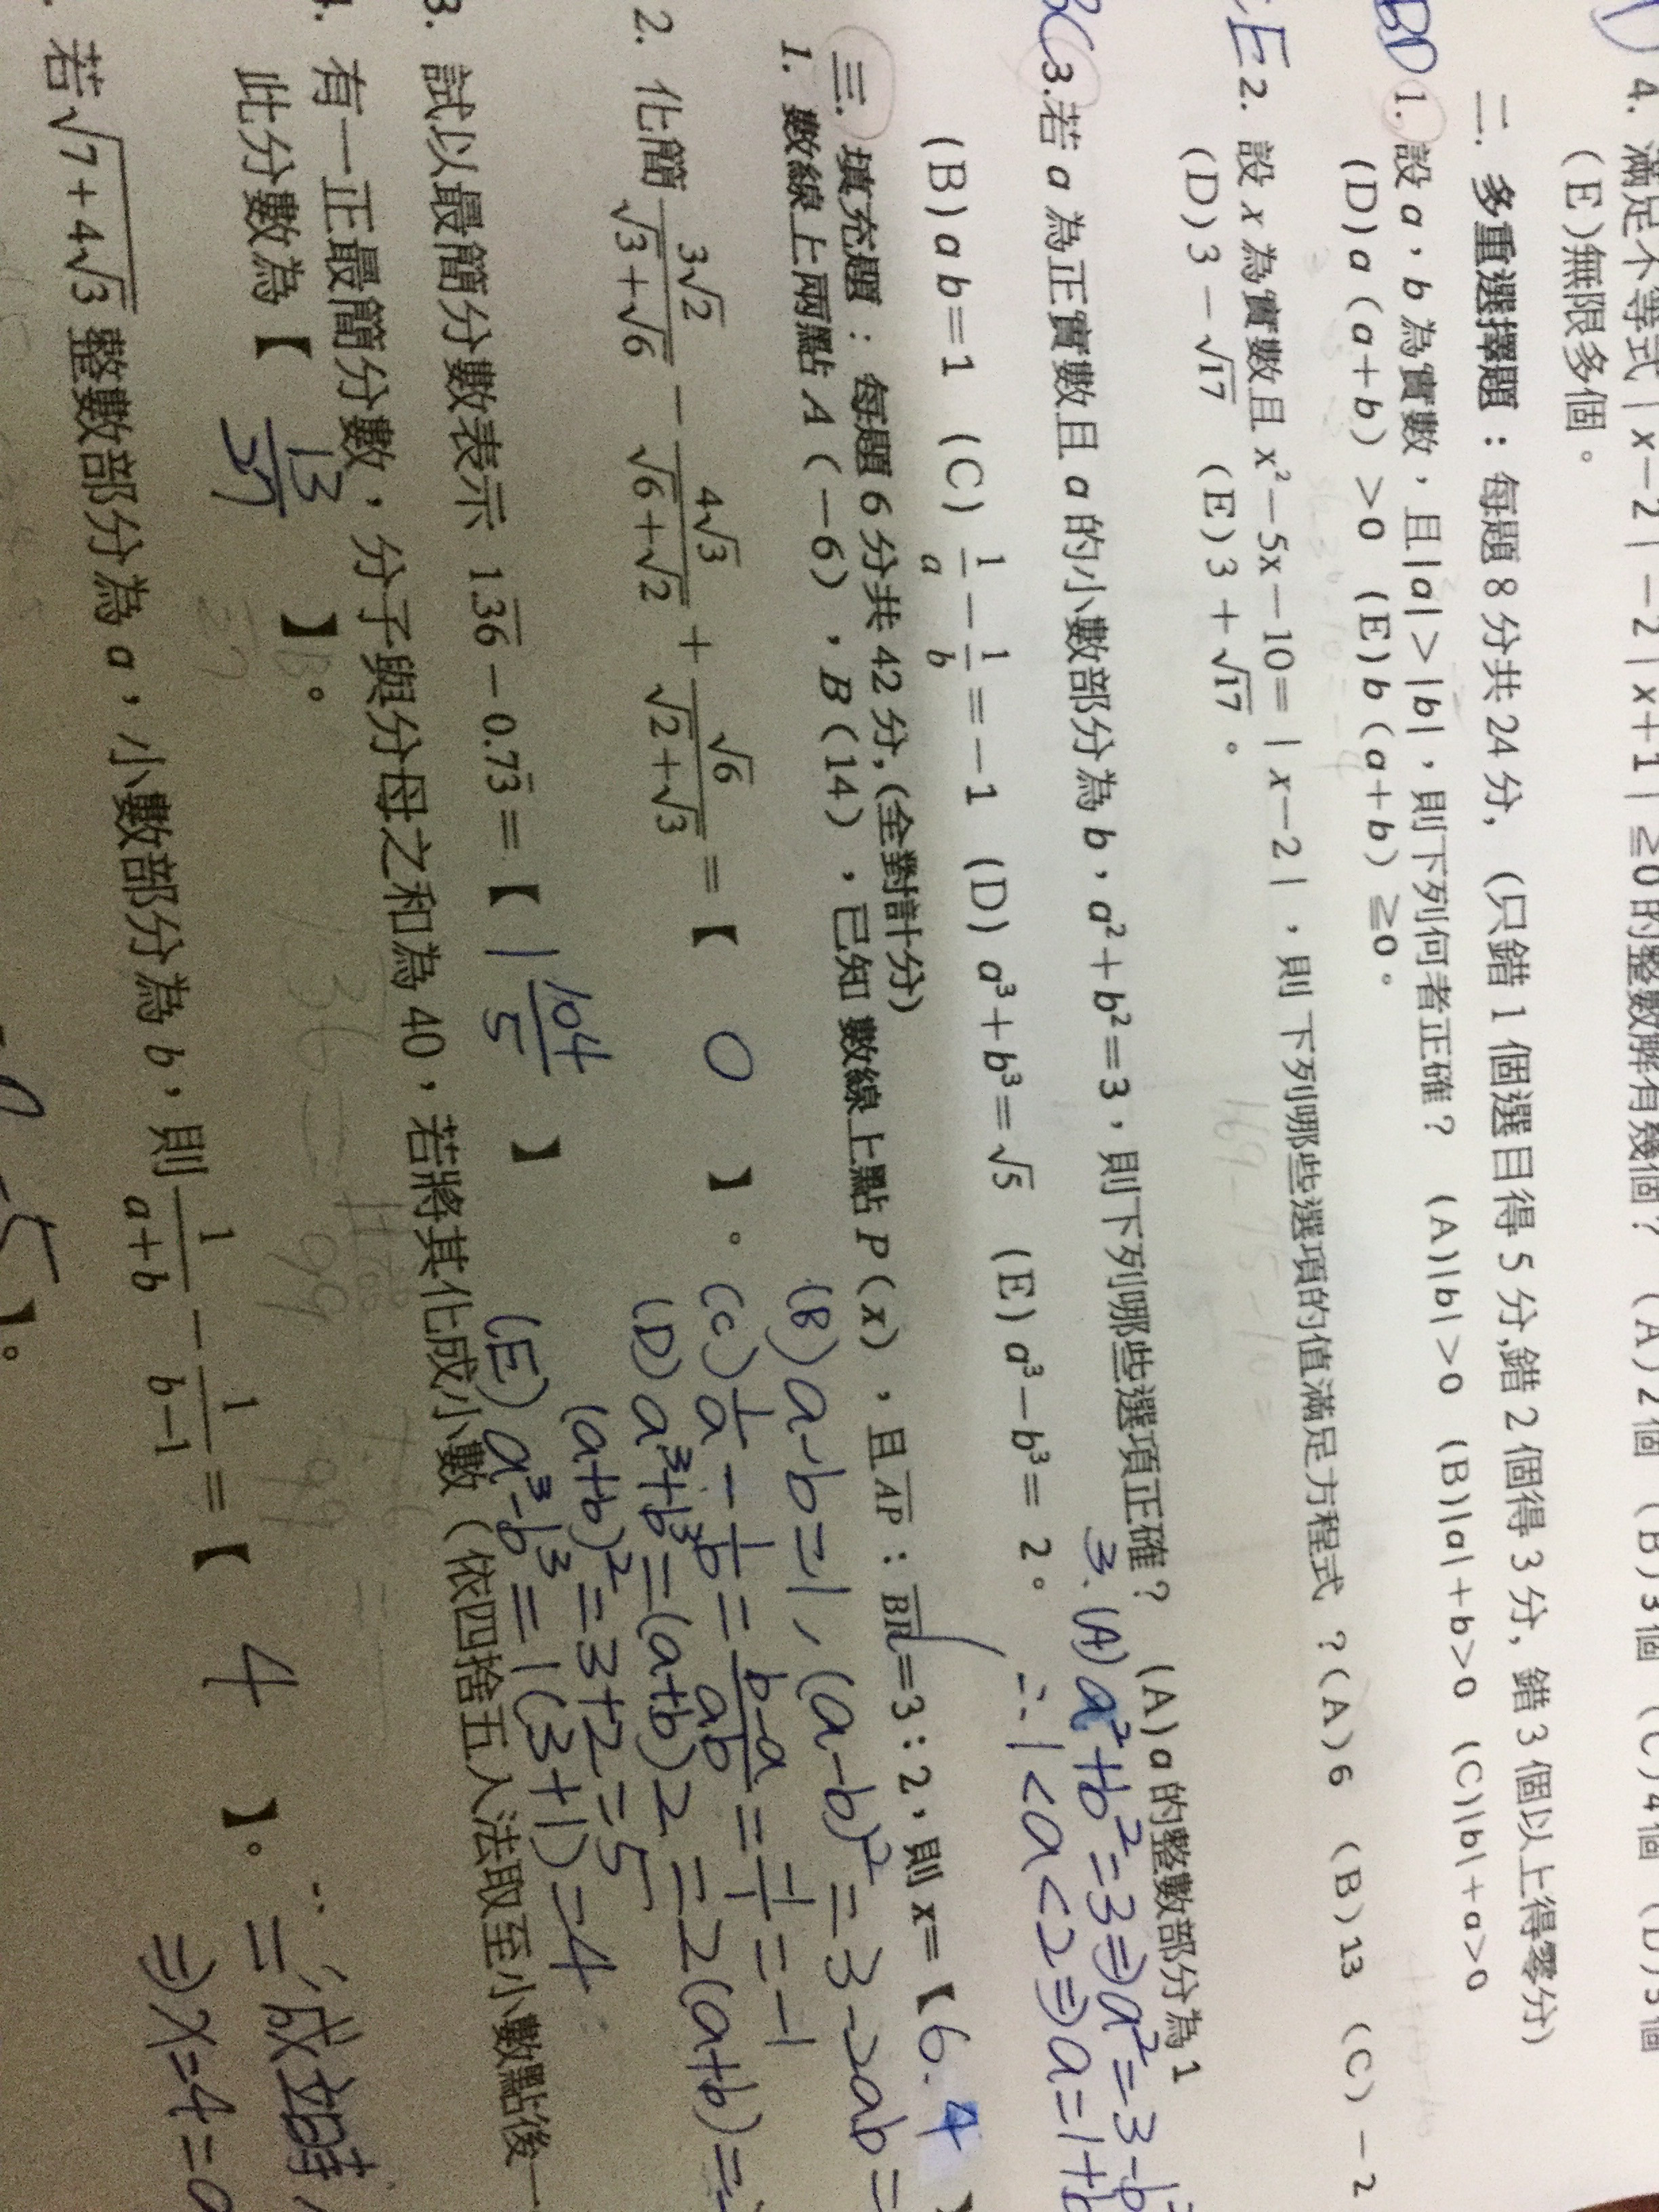 4. 滿足不等式|x−2|−2|x+1|≧0的整數解有幾個? (A)2個 (B)3個 (C)4個 (D)5個
(E)無限多個。
二. 多重選擇題:每題8分共24分, (只錯1個選目得5分,錯2個得3分, 錯3個以上得零分)
BD 1. 設a,b為實數,且|a|>|b|,則下列何者正確? (A)|b|>0 (B)|a|+b>0 (C)|b|+a>0
(D)a(a+b)>0 (E)b(a+b)≧0。
E 2. 設x為實數且x²−5x−10=|x−2|,則下列哪些選項的值滿足方程式?(A)6 (B)13 (C)−2
(D)3−√17 (E)3+√17。
BC 3.若a為正實數且a的小數部分為b,a²+b²=3,則下列哪些選項正確? (A)a的整數部分為1
(B)ab=1 (C) 1/a − 1/b =−1 (D) a³+b³=√5 (E) a³−b³= 2。
3. (A) a²+b²=3⇒a²=3−b²
∴1<a<2⇒a=1+b
三. 填充題:每題6分共42分,(全對計分)
1. 數線上兩點A(−6),B(14),已知 數線上點P(x),且AP:BP=3:2,則x=【 6.4
(B) a−b=1,(a−b)²=3−2ab=
(C) 1/a − 1/b = (b−a)/ab = −1/1 = −1
2. 化簡 3√2/(√3+√6) − 4√3/(√6+√2) + √6/(√2+√3) =【 0 】。
(D) a³+b³=(a+b)2=2(a+b)=
(a+b)²=3+2=5
(E) a³−b³=1(3+1)=4
3. 試以最簡分數表示 1.3̅6̅−0.73̅=【 | 104/5 】
4. 有一正最簡分數,分子與分母之和為40,若將其化成小數(依四捨五入法取至小數點後一
此分數為【 13/27 】。
若√(7+4√3)整數部分為a,小數部分為b,則 1/(a+b) − 1/(b−1) =【 4 】。
"="成立時
⇒x=4=
】。